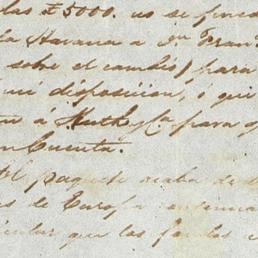 las £5000. no se
la Havana a Sn. Fran
sobre el cambio) para
mi disposicion, ó que
á Huth y Ca. para q
n Cuenta.
El paquete acaba de
s de Europa
cular que los fondos